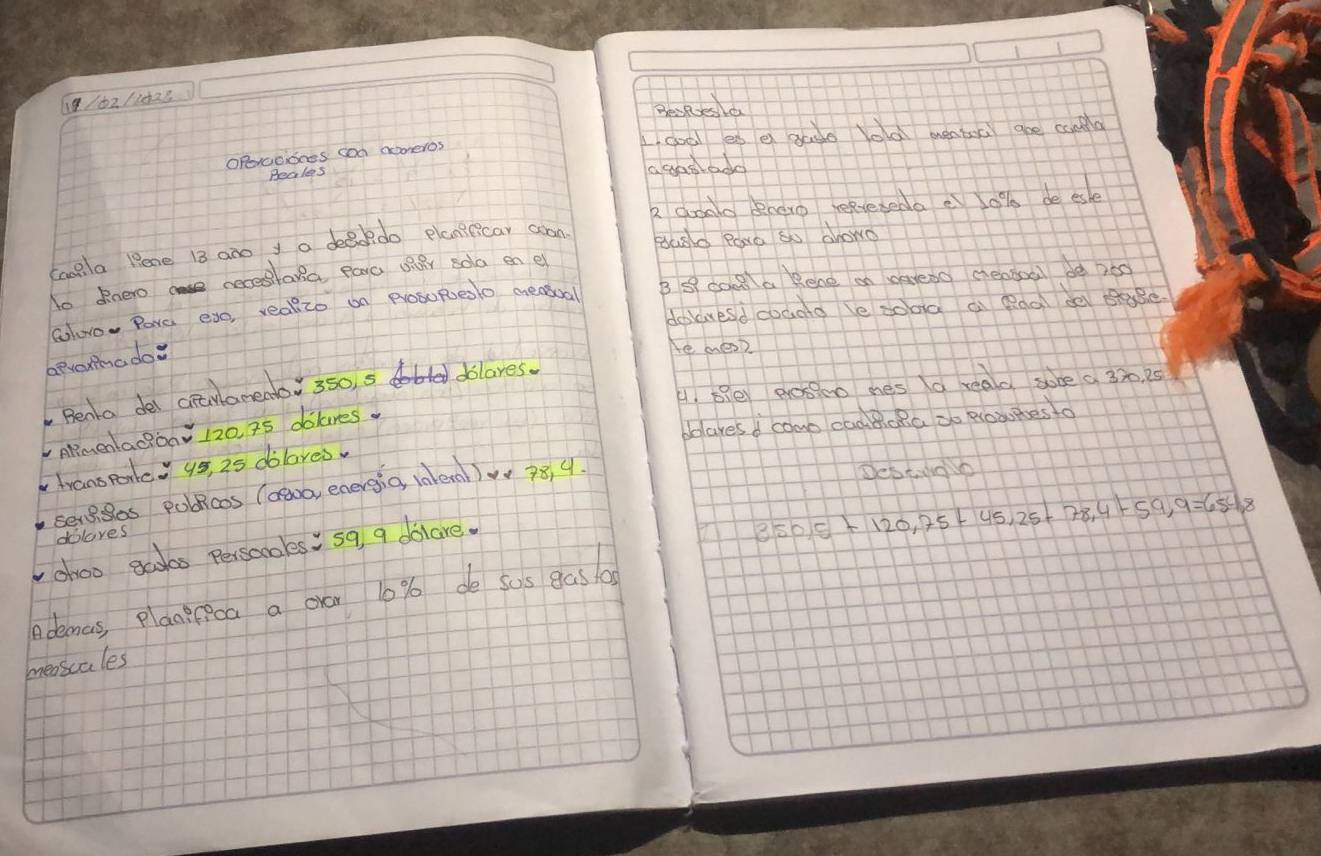 19/02/2025
Operaciónes con nomeros
Reales
Camila tiene 13 año y a desidido planificar coan-
to dinero necesitaria para vivir sola en el
foturo. Para eso, realizo un prosopuesto mensual
aproximado:
Renta del apartamento: 350,5 dólares.
Alimentación: 120,75 dólares.
transporte: 45,25 dólares.
serbisios publicos (agua, energia, internet): 78,4.
dólares
otros gastos Personales: 59,9 dólare.
Ademas, Planifica a orar 10% de sus gastos
mensuales
Respuesta
1. cual es el gasto total mensual que camila
a gastado
2 cuanto dinero representa el 10% de este
gasto Para su ahorro
3 si camila tiene un ingreso mensual de 700
dolares¿ cuanto le sobra al final del
te mes?
4. si el prosimo mes la renta sube a 370,25
dolares¿ como cambiaria su prosupuesto
Desarrollo
350,5 + 120,75 + 45,25 + 78,4 + 59,9 = 654,8